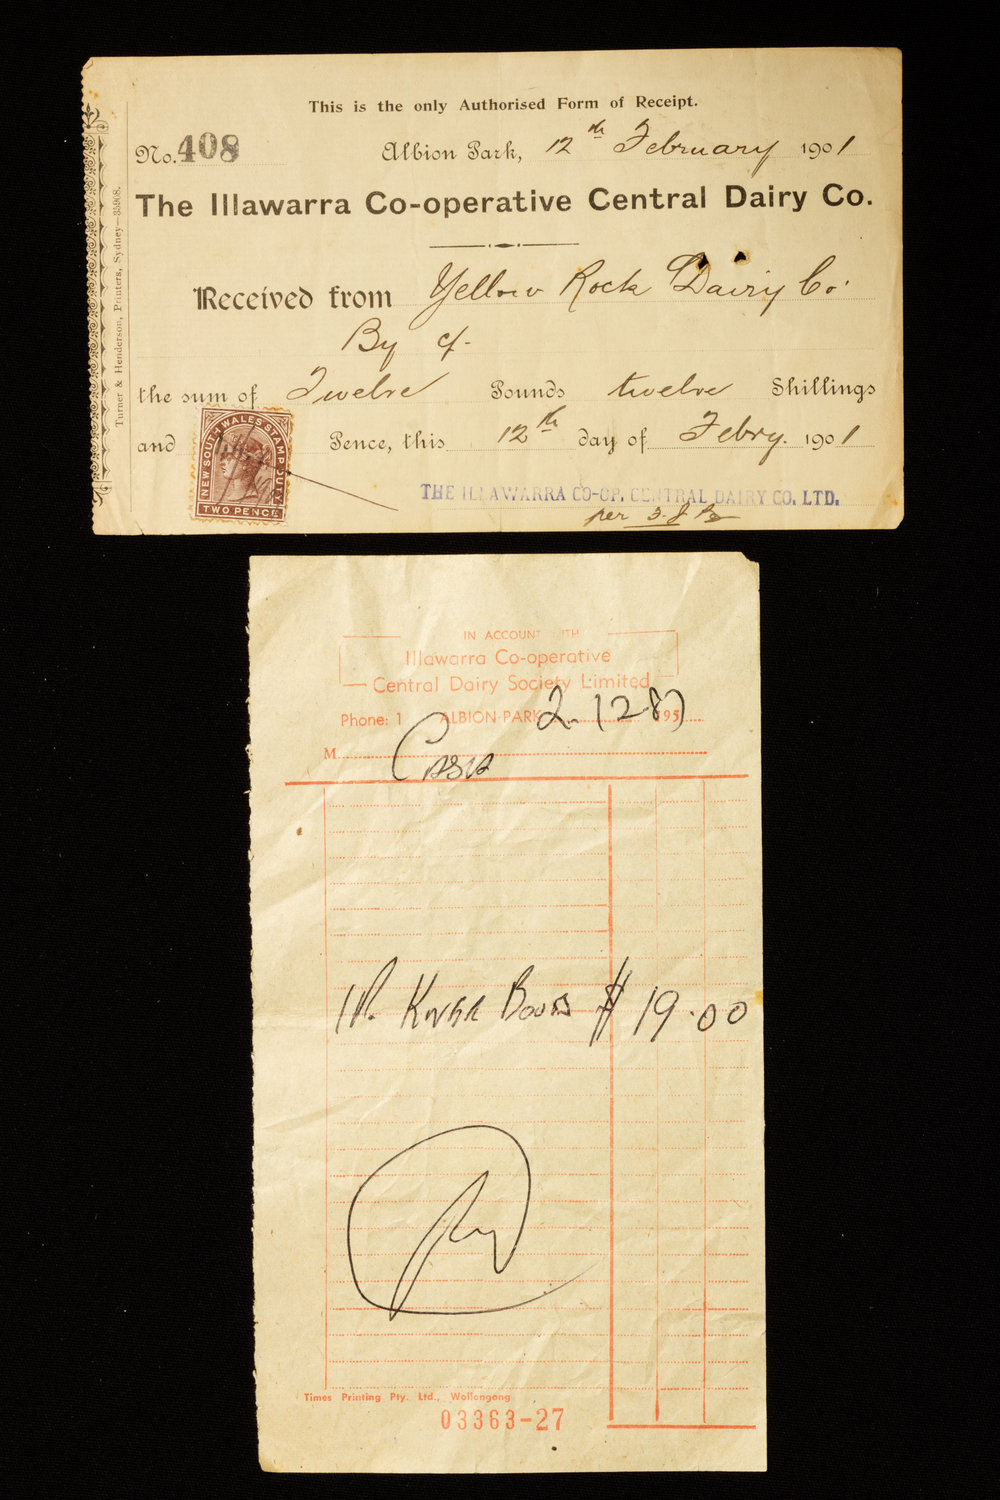 This is the only Authorised Form of Receipt.
No. 408 Albion Park, 12th February 1901
The Illawarra Co-operative Central Dairy Co.
Received from Yellow Rock Dairy Co.
By
the sum of Twelve Pounds twelve Shillings
and Pence, this 12th day of Febry. 1901
NEW SOUTH WALES STAMP DUTY
TWO PENCE
THE ILLAWARRA CO-OP. CENTRAL DAIRY CO. LTD.
per
Turner & Henderson, Printers, Sydney—35908.
IN ACCOUNT WITH
Illawarra Co-operative
Central Dairy Society Limited
Phone: 1 ALBION PARK 2.12.87 195
M Cash
1 P. Knee Boots $ 19.00
Times Printing Pty. Ltd., Wollongong
03363-27